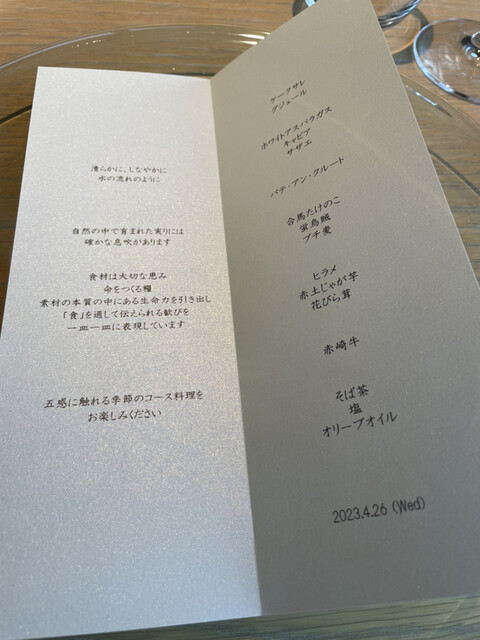 清らかに、しなやかに
水の流れのように
自然の中で育まれた実りには
確かな息吹があります
食材は大切な恵み
命をつくる糧
素材の本質の中にある生命力を引き出し
「食」を通して伝えられる歓びを
一皿一皿に表現しています
五感に触れる季節のコース料理を
お楽しみください
ケークサレ
グジェール
ホワイトアスパラガス
キャビア
サザエ
パテ・アン・クルート
合馬たけのこ
蛍烏賊
プチ麦
ヒラメ
赤土じゃが芋
花びら茸
赤崎牛
そば茶
塩
オリーブオイル
2023.4.26 (Wed)